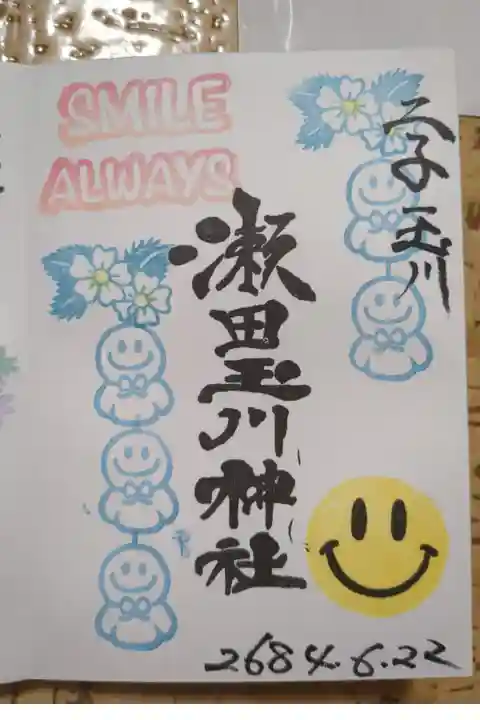 SMILE
ALWAYS
二子玉川
瀬田玉川神社
2684.6.22